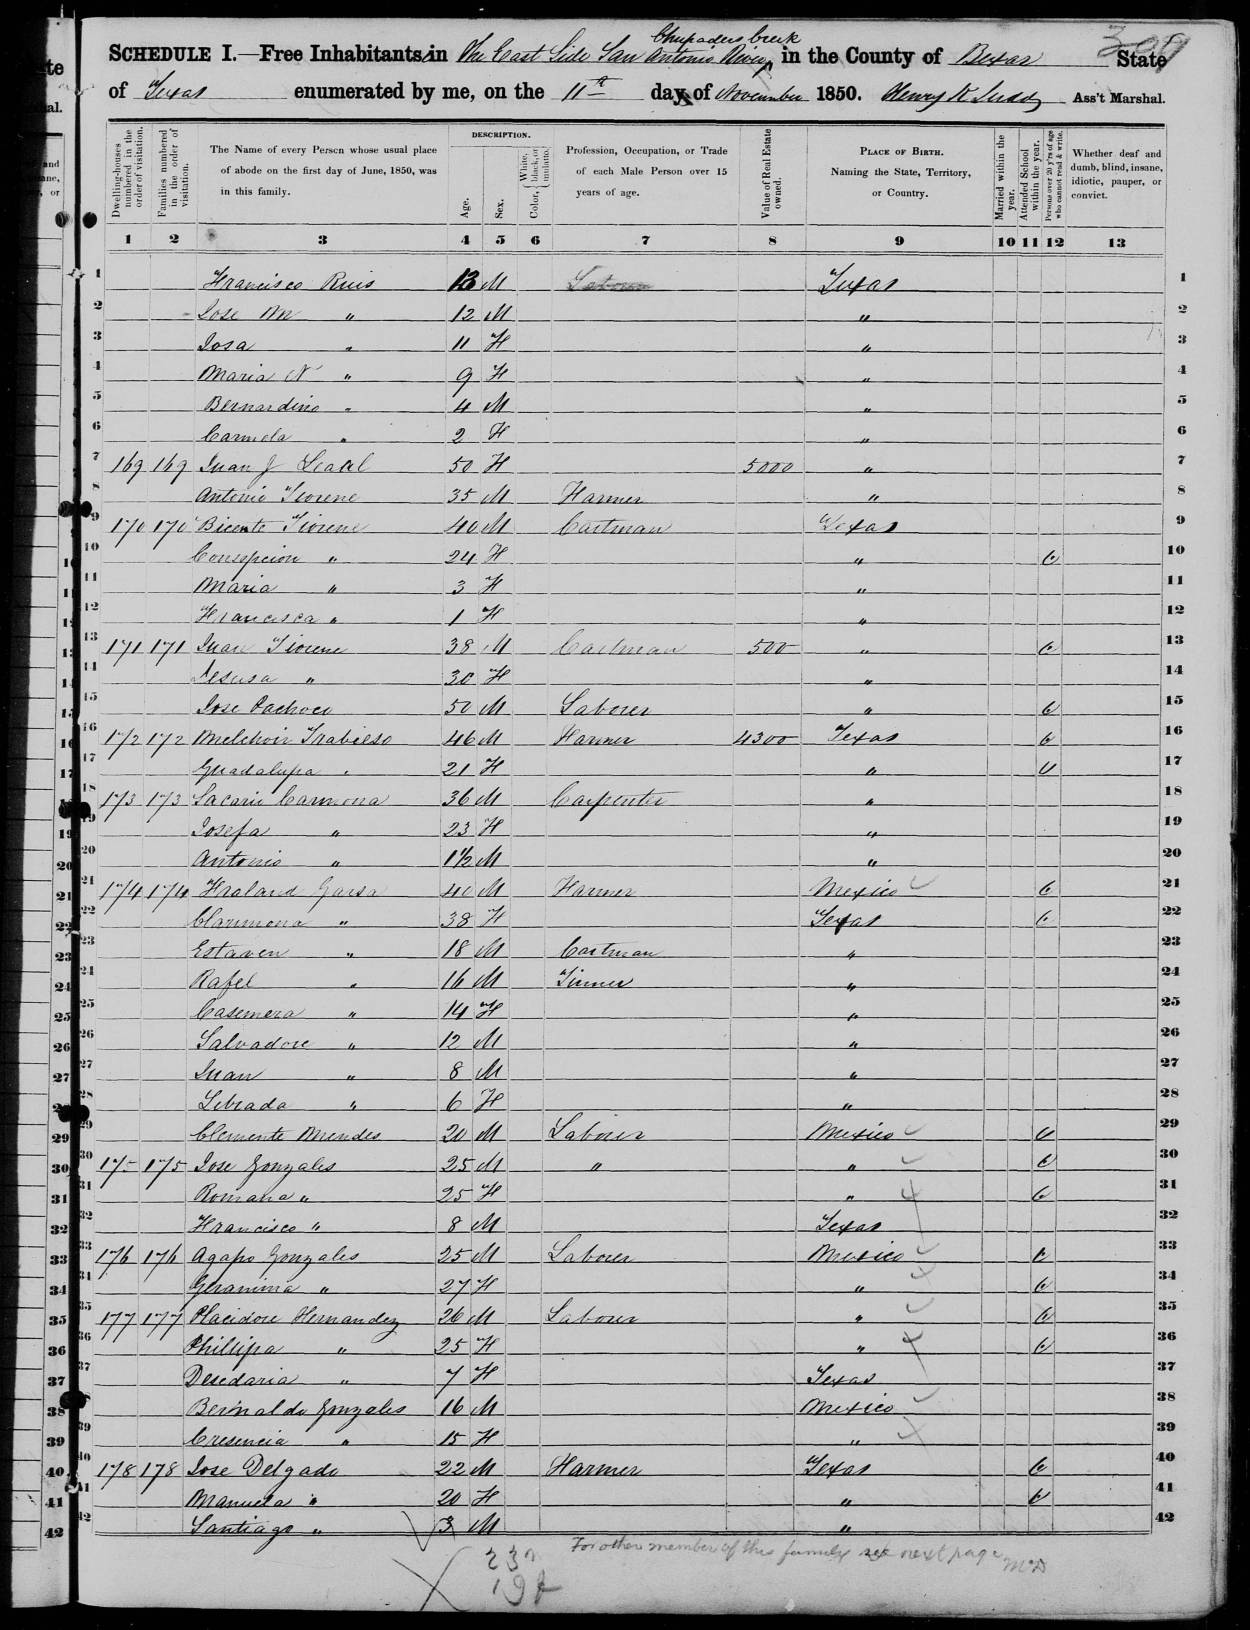 Chupaderes Creek
309
SCHEDULE I.—Free Inhabitants in The East Side San Antonio River in the County of Bexar State
of Texas enumerated by me, on the 11th day of November 1850. Henry K Judd Ass't Marshal.
Dwelling-houses numbered in the order of visitation.
Families numbered in the order of visitation.
The Name of every Person whose usual place of abode on the first day of June, 1850, was in this family.
DESCRIPTION.
Age.
Sex.
Color, White, black, or mulatto.
Profession, Occupation, or Trade of each Male Person over 15 years of age.
Value of Real Estate owned.
PLACE OF BIRTH. Naming the State, Territory, or Country.
Married within the year.
Attended School within the year.
Persons over 20 y'rs of age who cannot read & write.
Whether deaf and dumb, blind, insane, idiotic, pauper, or convict.
1 2 3 4 5 6 7 8 9 10 11 12 13
1 Francisco Ruis 13 M Laborer Texas 1
2 Jose M " 12 M " 2
3 Josa " 11 F " 3
4 Maria N " 9 F " 4
5 Bernardino " 4 M " 5
6 Carmela " 2 F " 6
7 169 169 Juan J Leal 50 F 5000 " 7
8 Antonio Tiorene 35 M Farmer " 8
9 170 170 Bicente Tiorene 40 M Cartman Texas 9
10 Consepcion " 24 F " 10
11 Maria " 3 F " 11
12 Francisca " 1 F " 12
13 171 171 Juan Tiorene 38 M Cartman 500 " 13
14 Jesusa " 30 F " 14
15 Jose Pacheco 50 M Laborer " 15
16 172 172 Melchoir Trabieso 46 M Farmer 4300 Texas 16
17 Guadalupa " 21 F " 17
18 173 173 Sacarie Carmona 36 M Carpenter " 18
19 Josefa " 23 F " 19
20 Antonio " 1½ M " 20
21 174 174 Froland Garsa 40 M Farmer Mexico 21
22 Clarimona " 38 F Texas 22
23 Estaven " 18 M Cartman " 23
24 Rafel " 16 M Tinner " 24
25 Casemera " 14 F " 25
26 Salvadore " 12 M " 26
27 Juan " 8 M " 27
28 Librada " 6 F " 28
29 Clemente Mendes 20 M Laborer Mexico 29
30 175 175 Jose Gonzales 25 M " " 30
31 Romana " 25 F " 31
32 Francisco " 8 M Texas 32
33 176 176 Agapo Gonzales 25 M Laborer Mexico 33
34 Geranima " 27 F " 34
35 177 177 Placidore Hernandez 26 M Laborer " 35
36 Phillipa " 25 F " 36
37 Desedaria " 7 F Texas 37
38 Bernaldo Gonzales 16 M Mexico 38
39 Cresencia " 15 F " 39
40 178 178 Jose Delgado 22 M Farmer Texas 40
41 Manuela " 20 F " 41
42 Santiago " 3 M " 42
For other member of this family see next page McD
23 m
19 f